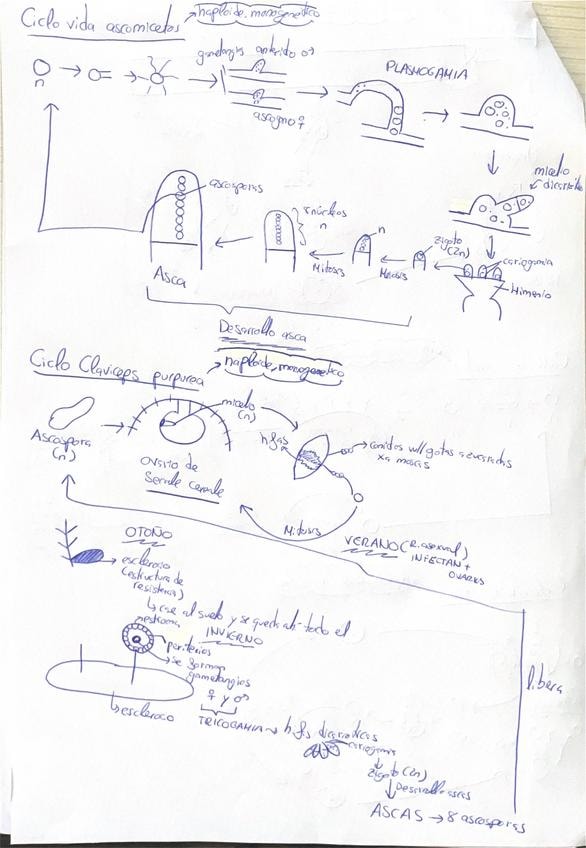 Ciclo vida ascomicetos → haploide, monogenético
gametangios anteridio ♂
n
ascogno ♀
PLASMOGAMIA
micelio
dicariótico
cariogamia
Himenio
zigoto
(2n)
Meiosis
n
Mitosis
núcleos
n
ascosporas
Asca
Desarrollo asca
Ciclo Claviceps purpurea → haploide, monogenético
Ascospora
(n)
micelio
(n)
Ovario de
Secale cereale
hifas
conidios w/ gotas azucaradas
xa moscas
Mitosis
VERANO (R. asexual)
INFECTAN +
OVARIOS
OTOÑO
esclerocio
(estructura de
resistencia)
↳ cae al suelo y se queda ahí todo el
INVIERNO
peritecios
se forman
gametangios
♀ y ♂
↳ esclerocio
TRICOGAMIA → hifas dicarióticas
cariogamia
zigoto (2n)
Desarrollo ascas
ASCAS → 8 ascosporas
libera